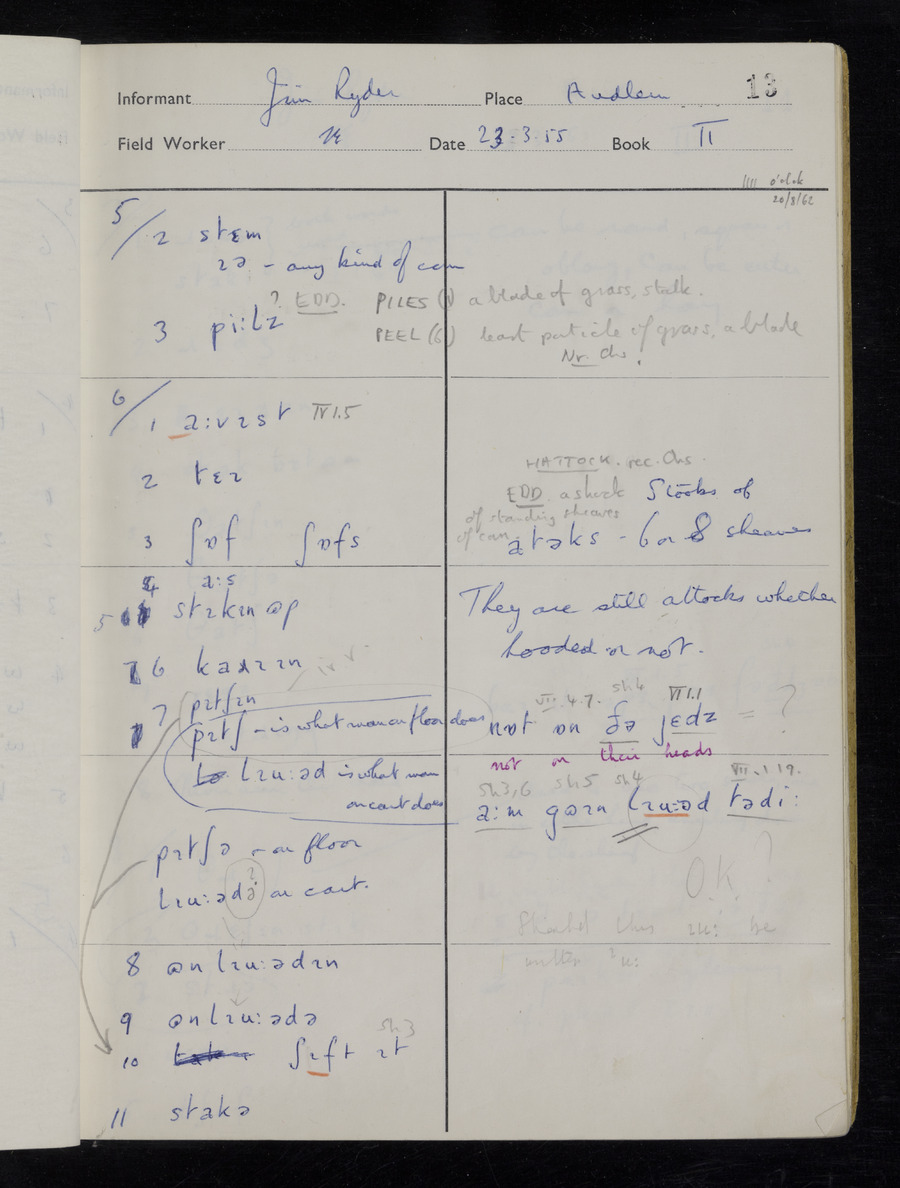 Informant Jim Ryder Place Audlem 13
Field Worker Date 23.3.55 Book II
20/8/62
5/2 stɛm
ɪə - any kind of corn
? EDD. PILES (1) a blade of grass, stalk.
3 pi:lz PEEL (6) least particle of grass, a blade
Nr. Chs!
6/1 a:vɪst IV 1.5
2 tɛɪ
HATTOCK. rec. Chs.
EDD a shock Stooks of
of standing sheaves
3 ʃɒf ʃɒfs
of corn atəks - 6 or 8 sheaves
4 a:s
5 stɪkɪn ɷp
They are still attocks whether
hooded or not.
6
7 pɪtʃɪn
pɪtʃ - is what man on floor does
lɪu:əd is what man
on cart does
VII.4.7. sh4 VI 1.1
nɒt ɒn ðə jɛdz = ?
not on their heads
sh3,6 sh5 sh4 VII.1 19.
a:m gɷɪn lɪu:əd tədi:
pɪtʃə - on floor
lɪu:ədə on cart.
?
O.K. ?
Should this ɪu: be
written ɪu:
8 ɷnlɪu:ədɪn
9 ɷnlɪu:ədə
sh3
10 ʃɪft ɪt
11 stakə